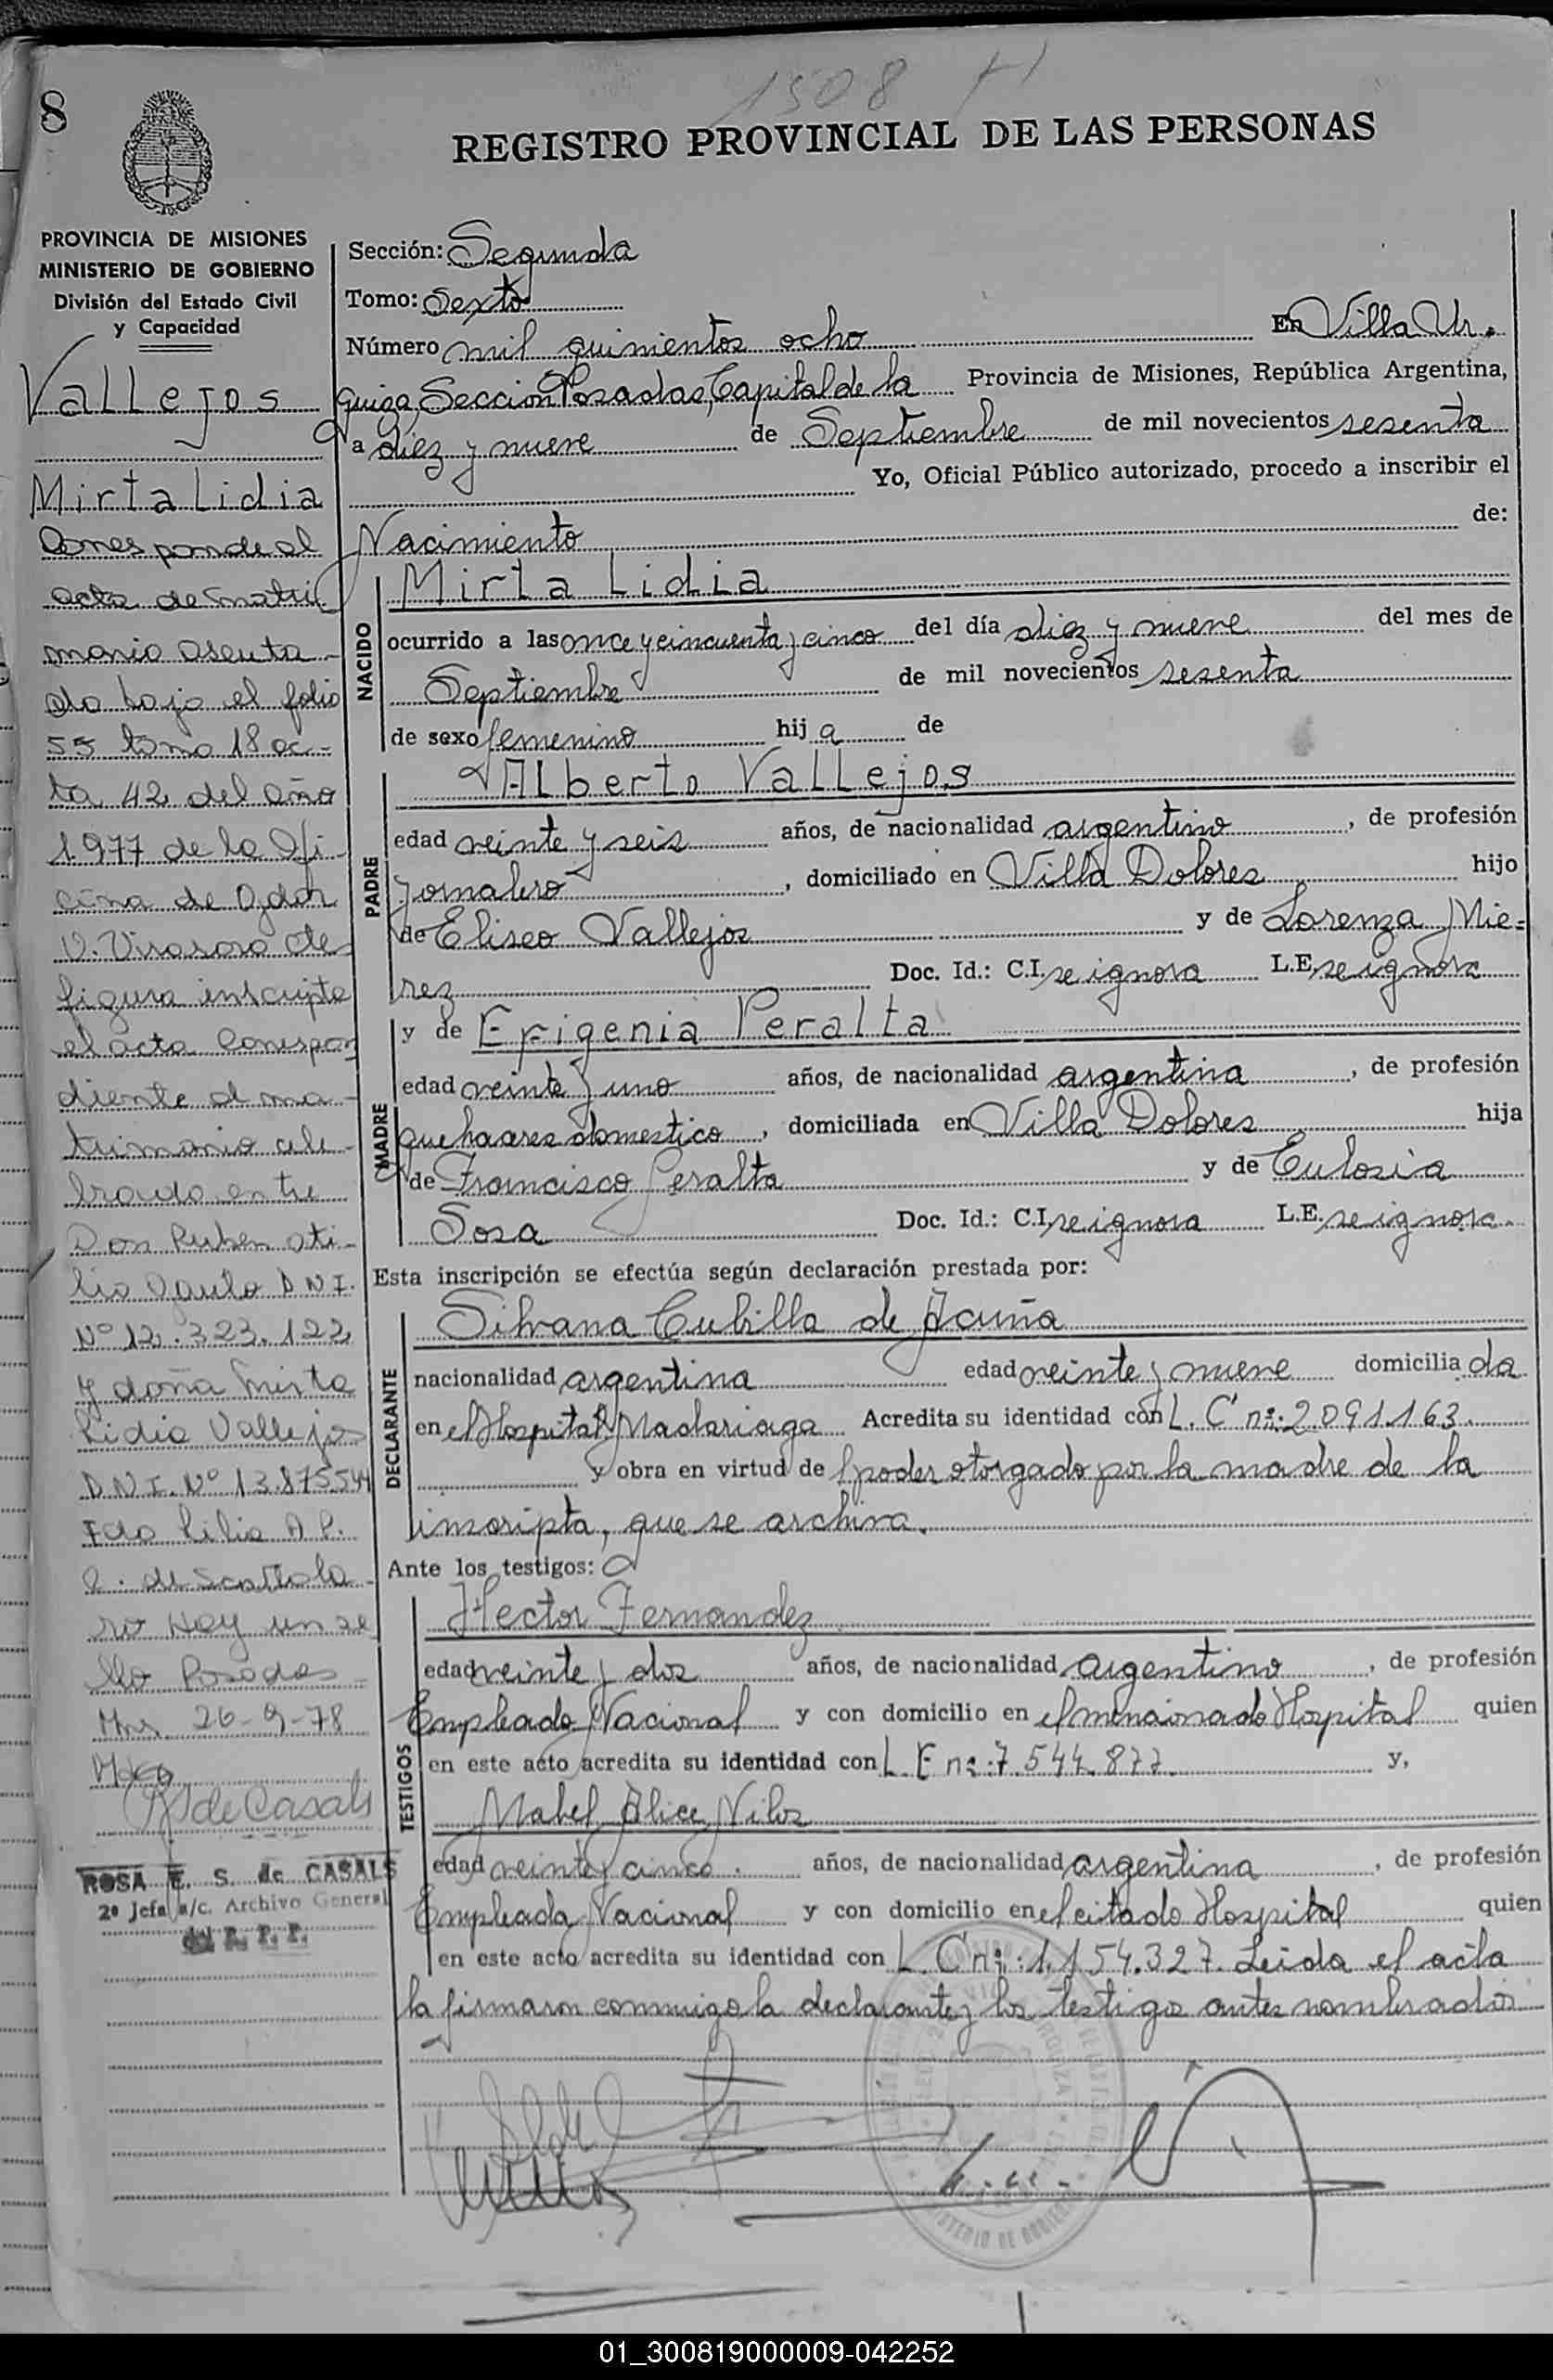 8
1508 H
REGISTRO PROVINCIAL DE LAS PERSONAS
PROVINCIA DE MISIONES
MINISTERIO DE GOBIERNO
División del Estado Civil
y Capacidad
Vallejos
Mirta Lidia
Corresponde al
acta de matri
monio asenta
do bajo el folio
55 tomo 18 ac-
ta 42 del año
1977 de la Ofi
cina de Gdor
V. Virasoro Ctes
figura inscripta
el acta Correspon
diente al ma-
trimonio cele-
brado entre
Don Ruben oti-
lio D N I.
Nº 12.323.122
y doña Mirta
Lidia Vallejos
D.N.I. Nº 13.875544
Fdo Lilia A P.
de
Hay un se
llo Posadas
Mns. 26-9-78
de Casals
ROSA E. S. de CASALS
2º Jefa a/c. Archivo General
del R. P. P.
Sección: Segunda
Tomo: Sexto
Número mil quinientos ocho En Villa Ur.
quiza, Sección Posadas, Capital de la Provincia de Misiones, República Argentina,
a diez y nueve de Septiembre de mil novecientos sesenta
Yo, Oficial Público autorizado, procedo a inscribir el
Nacimiento de:
NACIDO
Mirta Lidia
ocurrido a las once y cincuenta y cinco del día diez y nueve del mes de
Septiembre de mil novecientos sesenta
de sexo femenino hij a de
PADRE
Alberto Vallejos
edad veinte y seis años, de nacionalidad argentino, de profesión
jornalero, domiciliado en Villa Dolores hijo
de Eliseo Vallejos y de Lorenza Mie=
rez Doc. Id.: C.I. se ignora L.E. se ignora
MADRE
y de Efigenia Peralta
edad veinte y uno años, de nacionalidad argentina, de profesión
quehaares domestico, domiciliada en Villa Dolores hija
de Francisco Peralta y de Eulosia
Sosa Doc. Id.: C.I. se ignora L.E. se ignora.
Esta inscripción se efectúa según declaración prestada por:
DECLARANTE
Silvana Cubilla de Acuña
nacionalidad argentina edad veinte y nueve domicilia da
en el Hospital R. Madariaga Acredita su identidad con L. C nº: 2.091.163.
y obra en virtud de poder otorgado por la madre de la
inscripta, que se archiva.
Ante los testigos:
TESTIGOS
Hector Fernandez
edad veinte y dos años, de nacionalidad argentino, de profesión
Empleado Nacional y con domicilio en el mencionado Hospital quien
en este acto acredita su identidad con L. E nº: 7.544.877. y,
Mabel Alice Vilos
edad veinte y cinco. años, de nacionalidad argentina, de profesión
Empleada Nacional y con domicilio en el citado Hospital quien
en este acto acredita su identidad con L. C nº: 1.154.327. Leida el acta
la firmaron conmigo la declarante y los testigos antes nombrados
01_300819000009-042252